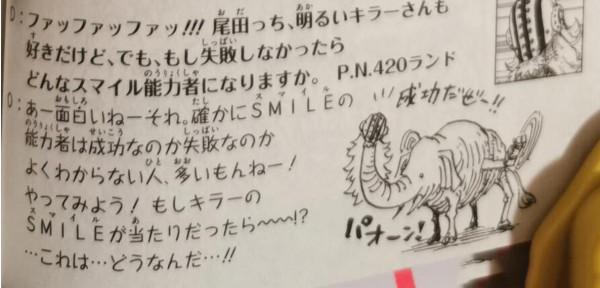 D:ファッファッファッ!!! 尾田っち、明るいキラーさんも
好きだけど、でも、もし失敗しなかったら
どんなスマイル能力者になりますか。 P.N.420ランド
O:あー面白いねーそれ。確かにSMILEの
能力者は成功なのか失敗なのか
よくわからない人、多いもんねー!
やってみよう! もしキラーの
SMILEが当たりだったら〜〜〜!?
…これは…どうなんだ…!!
成功だぜー!!
パオーン!